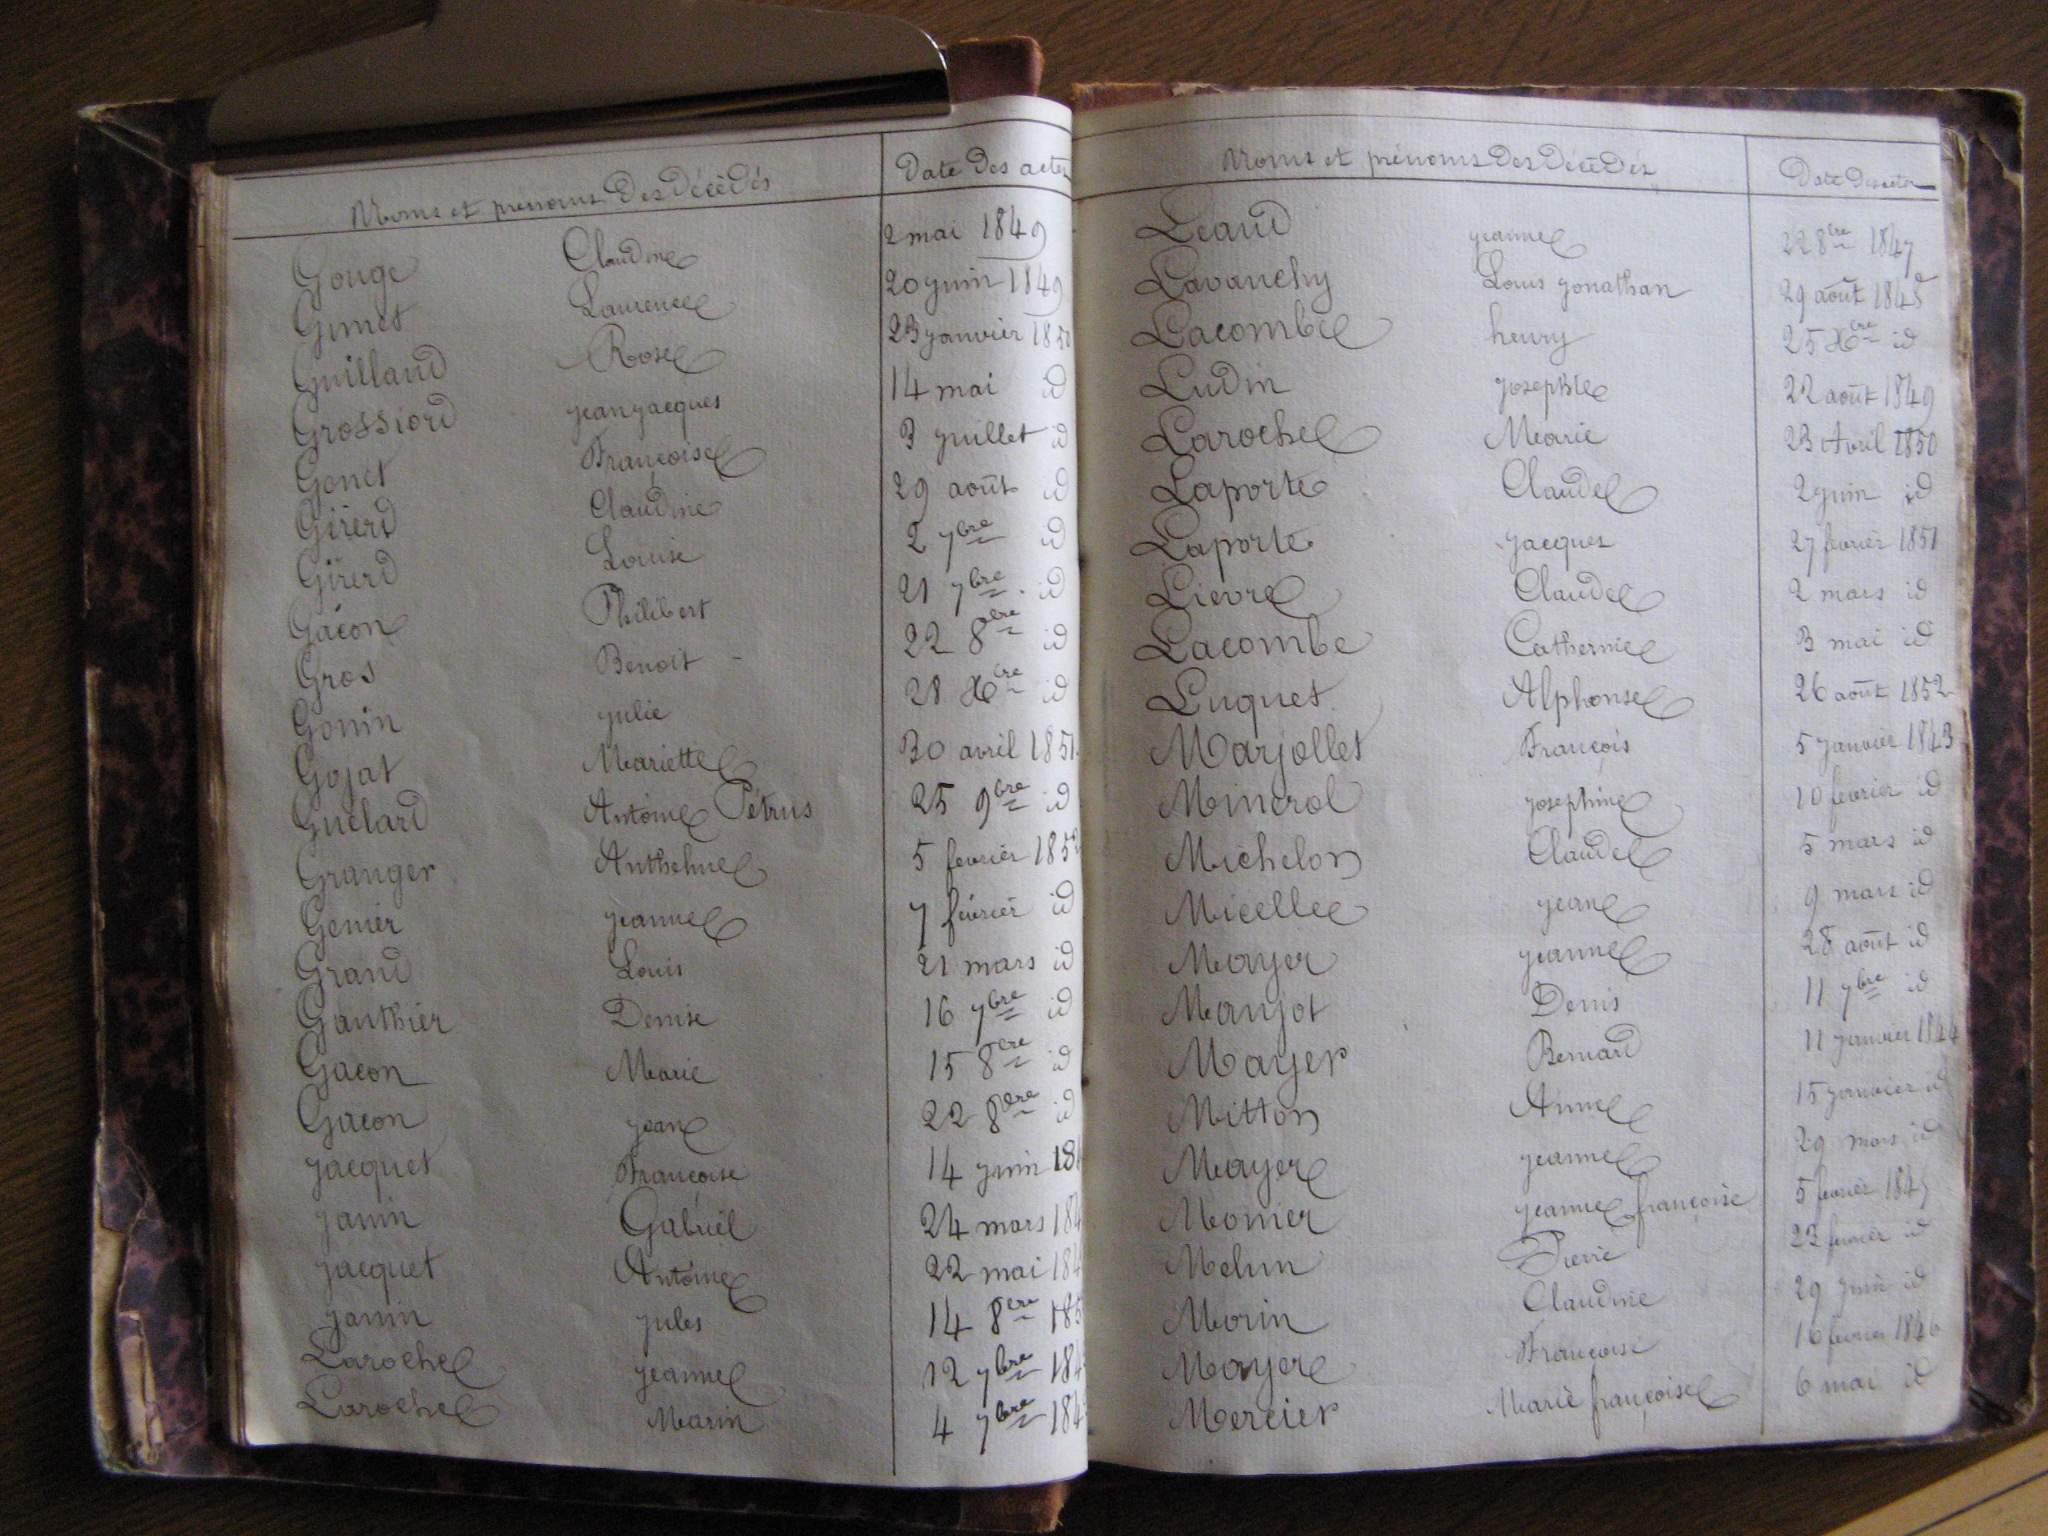 Noms et prénoms des décédés Date des actes
Gouge Claudine 2 mai 1849
Gunet Laurence 20 juin 1849
Guilland Rose 23 janvier 1850
Grossiord jean jacques 14 mai id
Gonet Françoise 3 juillet id
Girerd Claudine 29 août id
Girerd Louise 2 7bre id
Gacon Philibert 21 7bre id
Gros Benoit 22 8bre id
Gonin julie 28 Xbre id
Gojat Mariette 30 avril 1851
Guelard Antoine Pétrus 25 9bre id
Granger Anthelme 5 fevrier 185
Genier jeanne 7 février id
Grand Louis 21 mars id
Gauthier Denise 16 7bre id
Gacon Marie 15 8bre id
Gacon jean 22 8bre id
jacquet Françoise 14 juin 18
janin Gabriel 24 mars 184
jacquet Antoine 22 mai 184
janin jules 14 8bre 185
Laroche jeanne 12 7bre 184
Laroche Marin 4 7bre 184
Noms et prénoms des décédés Date des actes
Léaud jeanne 22 8bre 1847
Lavanchy Louis jonathan 29 août 1848
Lacombe henry 25 Xbre id
Ludin josephte 22 août 1849
Laroche Marie 23 Avril 1850
Laporte Claude 2 juin id
Laporte jacques 27 fevrier 1851
Lievre Claude 2 mars id
Lacombe Catherine 3 mai id
Luquet Alphonse 26 août 1852
Marjollet François 5 janvier 1843
Minerol josephine 10 fevrier id
Michelon Claude 5 mars id
Micelle jean 9 mars id
Mayer jeanne 28 août id
Manjot Denis 11 7bre id
Mayer Bernard 11 janvier 1844
Mitton Anne 15 janvier id
Mayer jeanne 29 mars id
Monier jeanne françoise 5 fevrier 1845
Melun Pierre 23 fevrier id
Morin Claudine 29 juin id
Mayer Françoise 16 fevrier 1846
Mercier Marie françoise 6 mai id